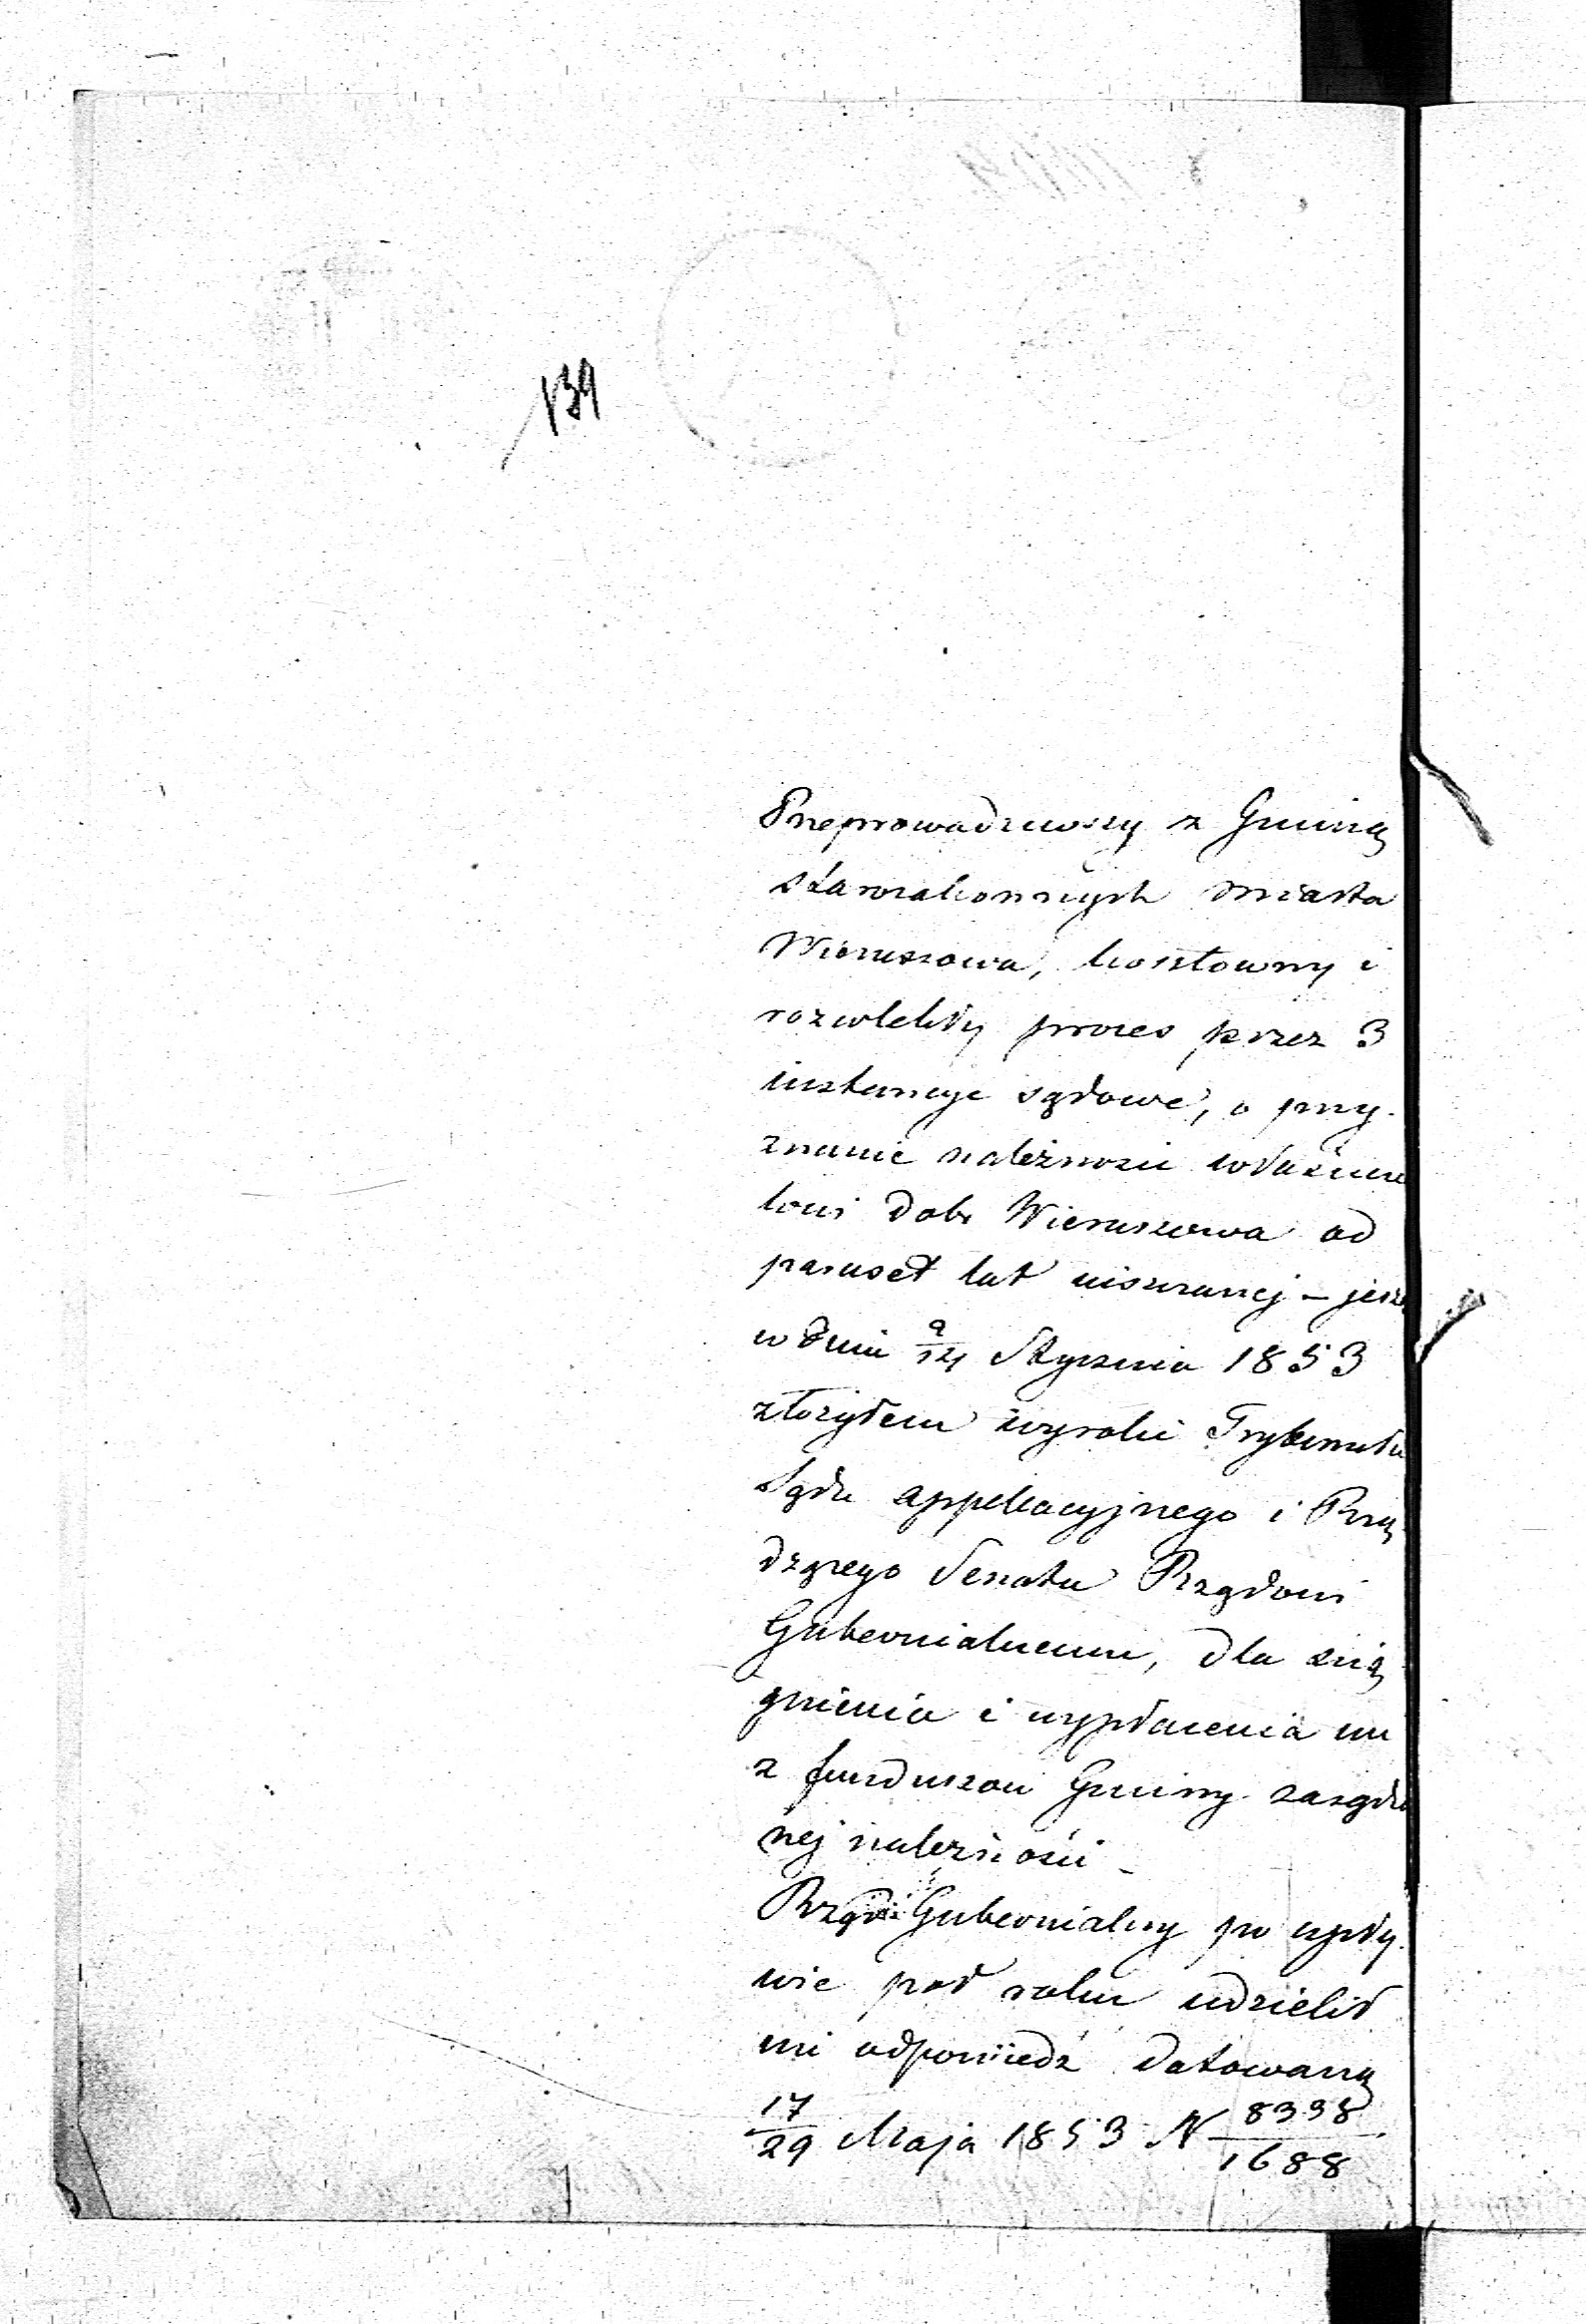 139
Przeprowadziwszy z Gminą
starozakonnych miasta
Wieruszowa, kosztowny i
rozwlekły proces przez 3
instancye sądowe, o przy-
znanie należności właścicie
lowi dóbr Wieruszowa od
paruset lat uiszczanej – jeszc
w dniu 9/21 Stycznia 1853
złożyłem wyroki Trybunału
Sądu appellacyjnego i Rzą
dzącego Senatu Rządowi
Gubernialnemu, dla ścią
gnienia i wypłacenia mi
z funduszów Gminy zasądzo
nej należności –
Rząd Gubernialny po upły-
wie pół roku udzielił
mi odpowiedź datowaną
17/29 Maja 1853 N 8338/1688